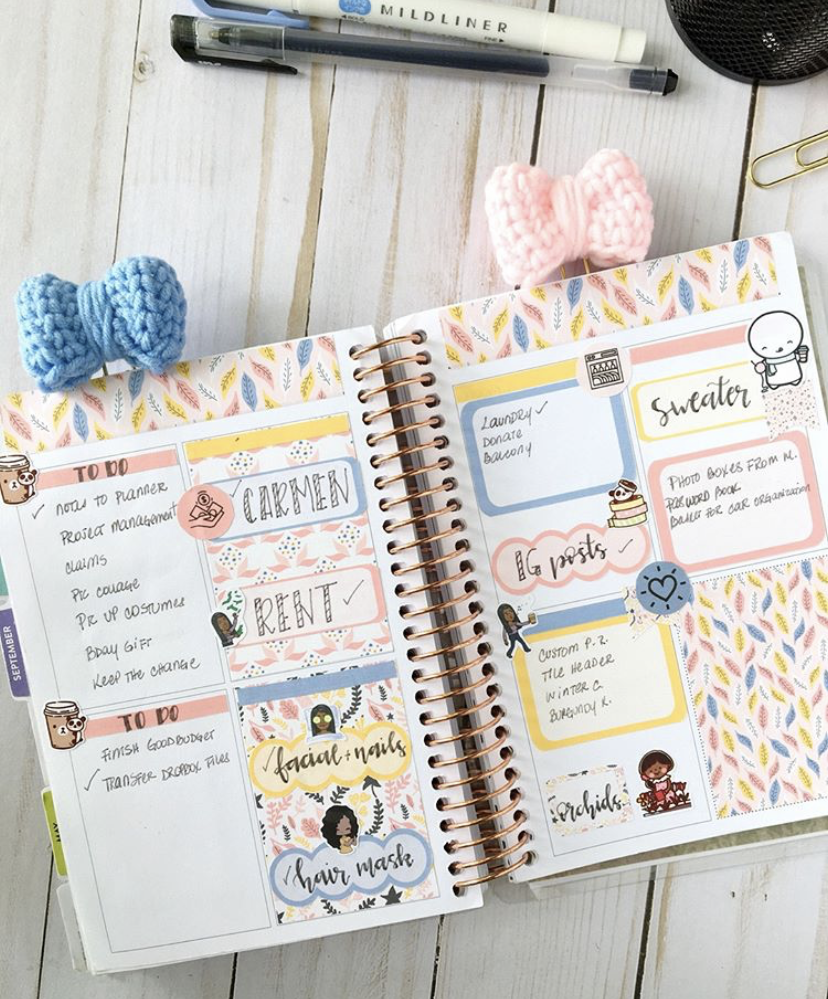 MILDLINER
TO DO
✓ NOTES TO PLANNER
PROJECT MANAGEMENT
CLAIMS
PIC COLLAGE
PIC UP COSTUMES
BDAY GIFT
KEEP THE CHANGE
TO DO
FINISH GOODBUDGET
✓ TRANSFER DROPBOX FILES
✓ CARMEN
RENT ✓
✓ facial + nails
✓ hair mask
LAUNDRY ✓
DONATE
BALCONY
IG posts ✓
CUSTOM P. R.
TILE HEADER
WINTER C.
BURGUNDY K.
orchids
Sweater
PHOTO BOXES FROM M.
PASSWORD BOOK
BASKET FOR CAR ORGANIZATION
SEPTEMBER
MAY